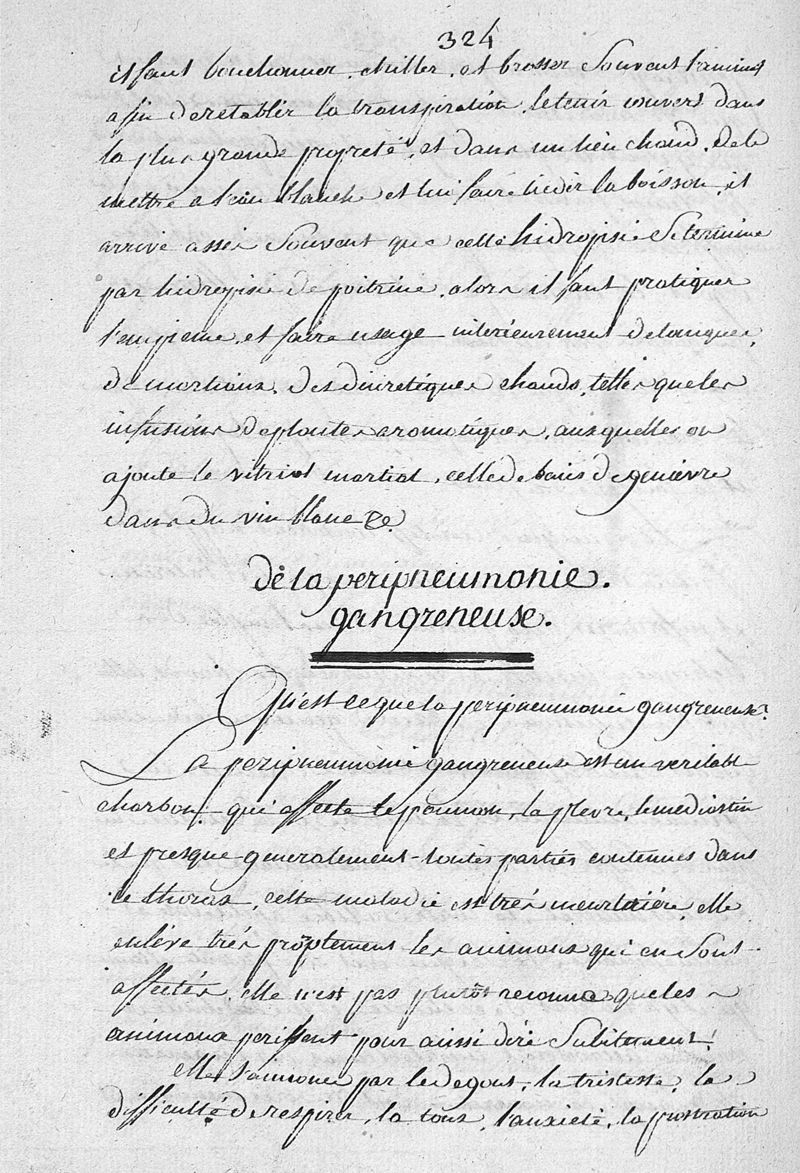 324
il faut bouchonner, etriller, et brosser souvent l'animal
afin deretablir la transpiration, le tenir couvert dans
la plus grande propreté, et dans un lieu chaud, de le
mettre a l'eau blanche et lui faire tiedir la boisson, il
arrive assés souvent que cette hidropisie se termine
par hidropisie de poitrine, alors il faut pratiquer
l'empieme, et faire usage interieurement de
de martiaux, des diuretiques chauds, telles que les
infusions de plantes aromatiques, auxquelles on
ajoute le vitriol martial, celle de baies de genievre
dans du vin blanc &c.
dè la peripneumonie.
gangreneuse.
Qu'est ce que la peripneumonie gangreneuse?
La peripneumonie gangreneuse est un veritable
charbon, qui affecte le poumon, la plevre, le mediastin
et presque generalement toutes parties contenues dans
le thorax, cette maladie est trés meurtriére, elle
enléve trés proptement les animaux qui en sont
affectés, elle n'est pas plutôt reconnue que les
animaux perissent pour aussi dire subitement!
elle s'annonce par le degout, la tristesse, la
difficulté de respirer, la toux, l'anxieté, la prostration